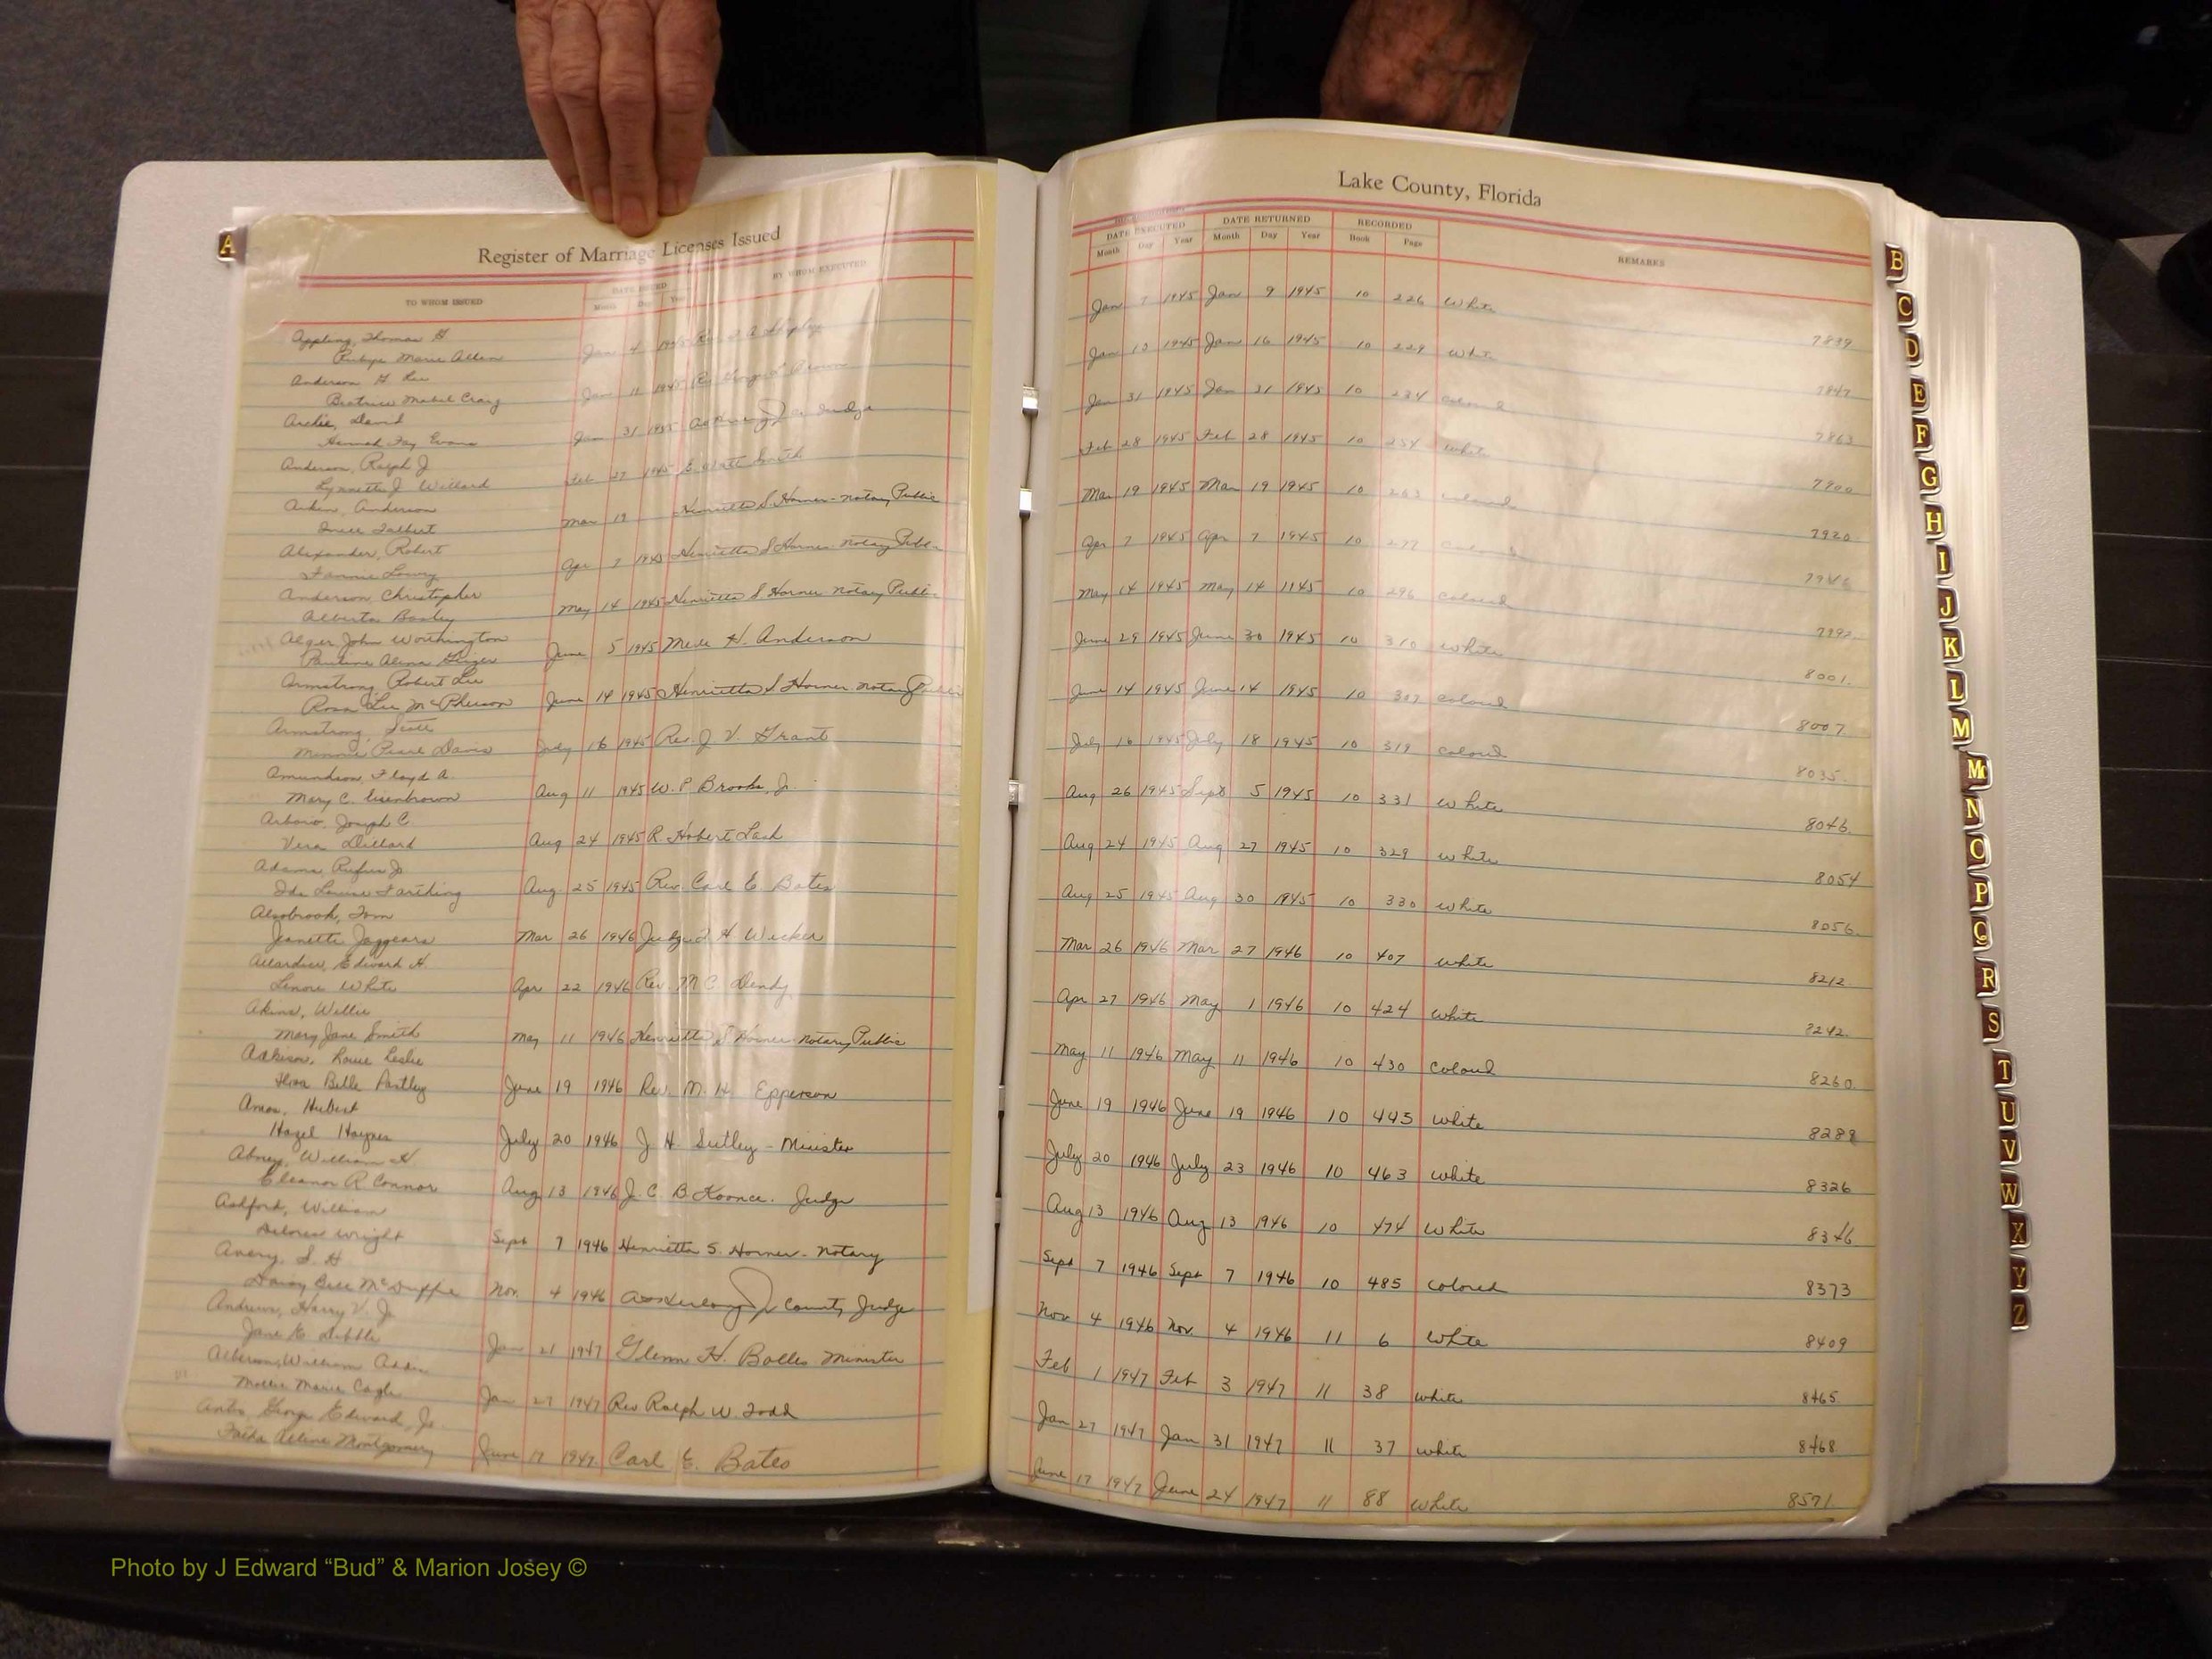 Register of Marriage Licenses Issued
TO WHOM ISSUED
DATE ISSUED
Month Day Year
BY WHOM EXECUTED
A
Appling, Thomas
Marie Allen Jan 4 1945 Rev.
Anderson
Beatrice Mabel Craig Jan 11 1945 Rev George Brown
Archie, David
Hannah Fay Evans Jan 31 1945 Judge
Anderson, Ralph J
Lynnette J Willard Feb 27 1945 E Smith
Anderson
Talbert Mar 19 Henrietta S. Horner - Notary Public
Alexander, Robert
Fannie Lowry Apr 7 1945 Henrietta S Horner Notary Public
Anderson, Christopher
Alberta May 14 1945 Henrietta S Horner Notary Public
Alger John Worthington
Pauline Alena June 5 1945 H. Anderson
Armstrong, Robert Lee
Rosa Lee McPherson June 14 1945 Henrietta S Horner Notary Public
Armstrong,
Minnie Pearl Davis July 16 1945 Rev. J. V. Grant
Amundson, Floyd A.
Mary C. Eisenbrown Aug 11 1945 W. P Brooks, Jr.
Joseph C.
Vera Dillard Aug 24 1945 R. Hobert Lash
Adams, Rufus Jr
Ida Louise Farthing Aug 25 1945 Rev. Carl E. Bates
Alsobrook, Tom
Jeanette Jaggears Mar 26 1946 Judge H
Allardice, Edward H.
Lenore White Apr 22 1946 Rev. M C Dendy
Akins, Willie
Mary Jane Smith May 11 1946 Henrietta S Horner Notary Public
Leslie
Belle June 19 1946 Rev. M. H. Epperson
Amos, Hubert
Hazel Haynes July 20 1946 J. H. Sutley - Minister
Abney, William H.
Eleanor R Connor Aug 13 1946 J. C. B. Koonce. Judge
Ashford, William
Delores Wright Sept 7 1946 Henrietta S. Horner - Notary
Avery, S. H
Daisy Bell McDuffie Nov. 4 1946 County Judge
Andrews, Harry V. Jr.
Jane E. Dibble Jan 21 1947 Glenn H. Bolles Minister
Alberson, William
Mollie Marie Cagle Jan 27 1947 Rev Ralph W. Todd
George Edward, Jr.
Montgomery June 17 1947 Carl E. Bates
Lake County, Florida
DATE EXECUTED DATE RETURNED RECORDED
Month Day Year Month Day Year Book Page
REMARKS
Jan 7 1945 Jan 9 1945 10 226 White 7839
Jan 13 1945 Jan 16 1945 10 229 White 7847
Jan 31 1945 Jan 31 1945 10 234 Colored 7863
Feb 28 1945 Feb 28 1945 10 254 White 7900
Mar 19 1945 Mar 19 1945 10 263 Colored 7920
Apr 7 1945 Apr 7 1945 10 277 Colored 7946
May 14 1945 May 14 1945 10 296 Colored
June 29 1945 June 30 1945 10 310 White 8001.
June 14 1945 June 14 1945 10 307 Colored 8007
July 16 1945 July 18 1945 10 319 Colored 8035.
Aug 26 1945 Sept 5 1945 10 331 White 8046.
Aug 24 1945 Aug 27 1945 10 329 White 8054
Aug 25 1945 Aug 30 1945 10 330 White 8056.
Mar 26 1946 Mar 27 1946 10 407 White 8212.
Apr 27 1946 May 1 1946 10 424 White 8242.
May 11 1946 May 11 1946 10 430 Colored 8260
June 19 1946 June 19 1946 10 445 White
July 20 1946 July 23 1946 10 463 White 8326
Aug 13 1946 Aug 13 1946 10 474 White 8346
Sept 7 1946 Sept 7 1946 10 485 Colored 8373
Nov 4 1946 Nov. 4 1946 11 6 White 8409
Feb 1 1947 Feb 3 1947 11 38 White 8465
Jan 27 1947 Jan 31 1947 11 37 White 8468
June 17 1947 June 24 1947 11 88 White 8571.
B
C
D
E
F
G
H
I
J
K
L
M
Mc
N
O
P
Q
R
S
T
U
V
W
X
Y
Z
Photo by J Edward “Bud” & Marion Josey ©